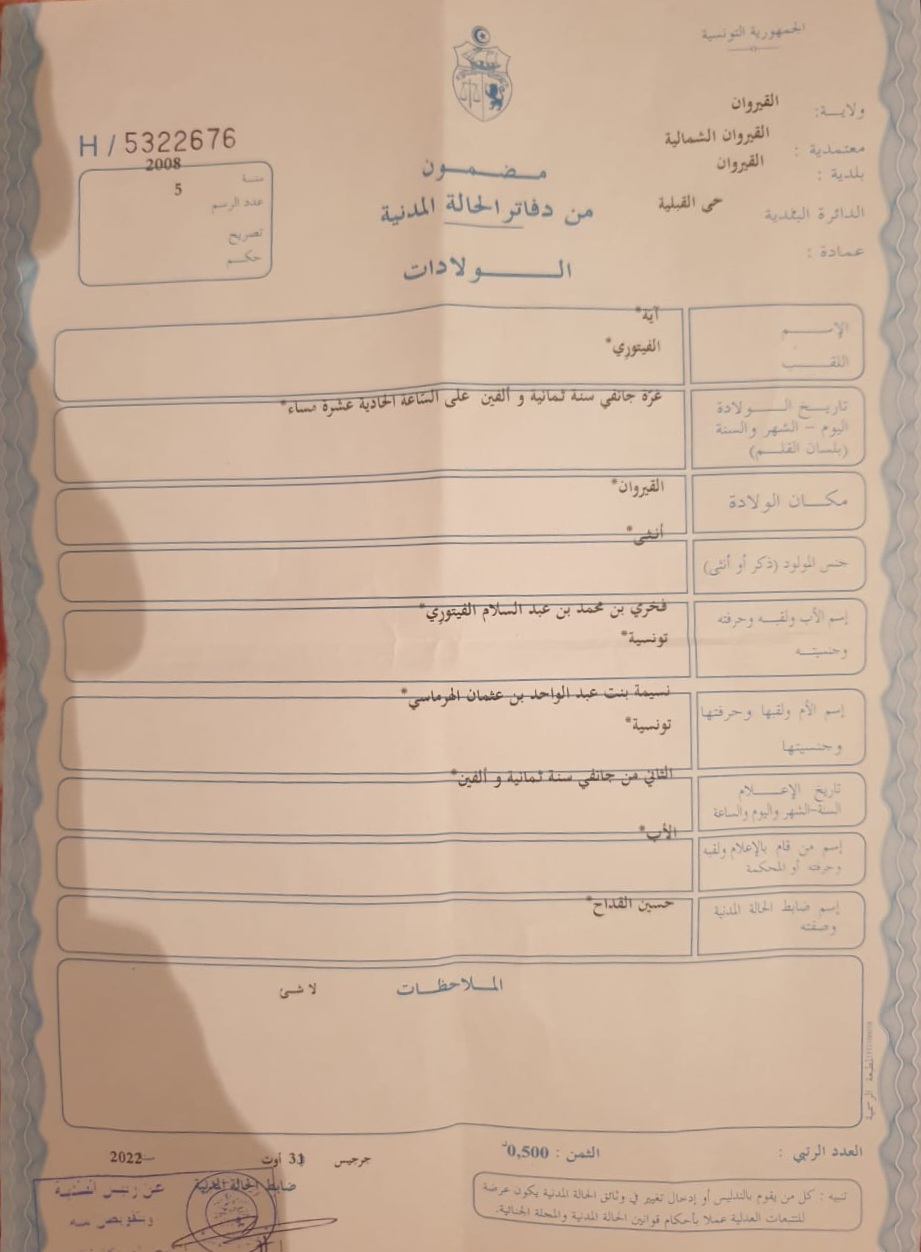 الجمهورية التونسية
ولايـــة: القيروان
معتمدية : القيروان الشمالية
بلدية : القيروان
الدائرة البلدية حى القبلية
عمادة :
H / 5322676
سنـة 2008
عدد الرسم 5
تصريح
حكـم
مـضـمـــون
من دفاتر الحالة المدنية
الـــــولادات
الإســـــم آية*
اللقـــب الفيتوري*
تاريـــخ الـــــولادة غرّة جانفي سنة ثمانية و ألفين على السّاعة الحادية عشرة مساء*
اليوم – الشهر والسنة
(بلسان القلـــم)
مكـــان الولادة القيروان*
جنس المولود (ذكر أو أنثى) أنثى*
إسم الأب ولقبـــه وحرفته فخري بن محمد بن عبد السلام الفيتوري*
وجنسيتـــه تونسية*
إسم الأم ولقبها وحرفتها نسيمة بنت عبد الواحد بن عثمان الهرماسي*
وجنسيتها تونسية*
تاريخ الإعـــــلام الثاني من جانفي سنة ثمانية و ألفين*
السنة-الشهر واليوم والساعة
إسم من قام بالإعلام ولقبه الأب*
وحرفته أو المحكمة
إسم ضابط الحالة المدنية حسين القداح*
وصفته
المـــلاحظـــات لا شئ
المطبعة الرسمية
العدد الرتبي :
الثمن : 0,500د
جرجيس 31 أوت 2022
ضابط الحالة المدنية
تنبيه : كل من يقوم بالتدليس أو إدخال تغيير في وثائق الحالة المدنية يكون عرضة
للتتبعات العدلية عملا بأحكام قوانين الحالة المدنية والمجلة الجنائية.
عن رئيس
وبتفويض منه